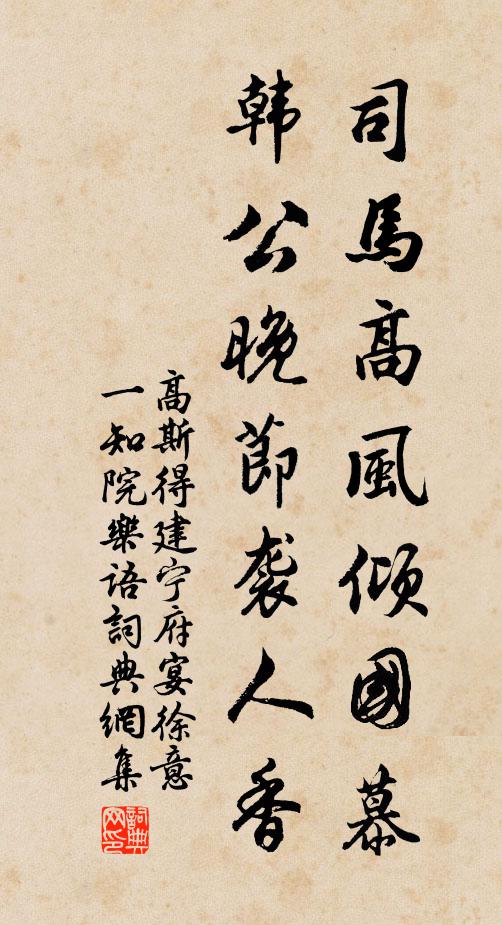 司馬高風傾國慕
韩公晚節袭人香
高斯得建宁府宴徐意
一知院樂語詞典網集
詞典
网印